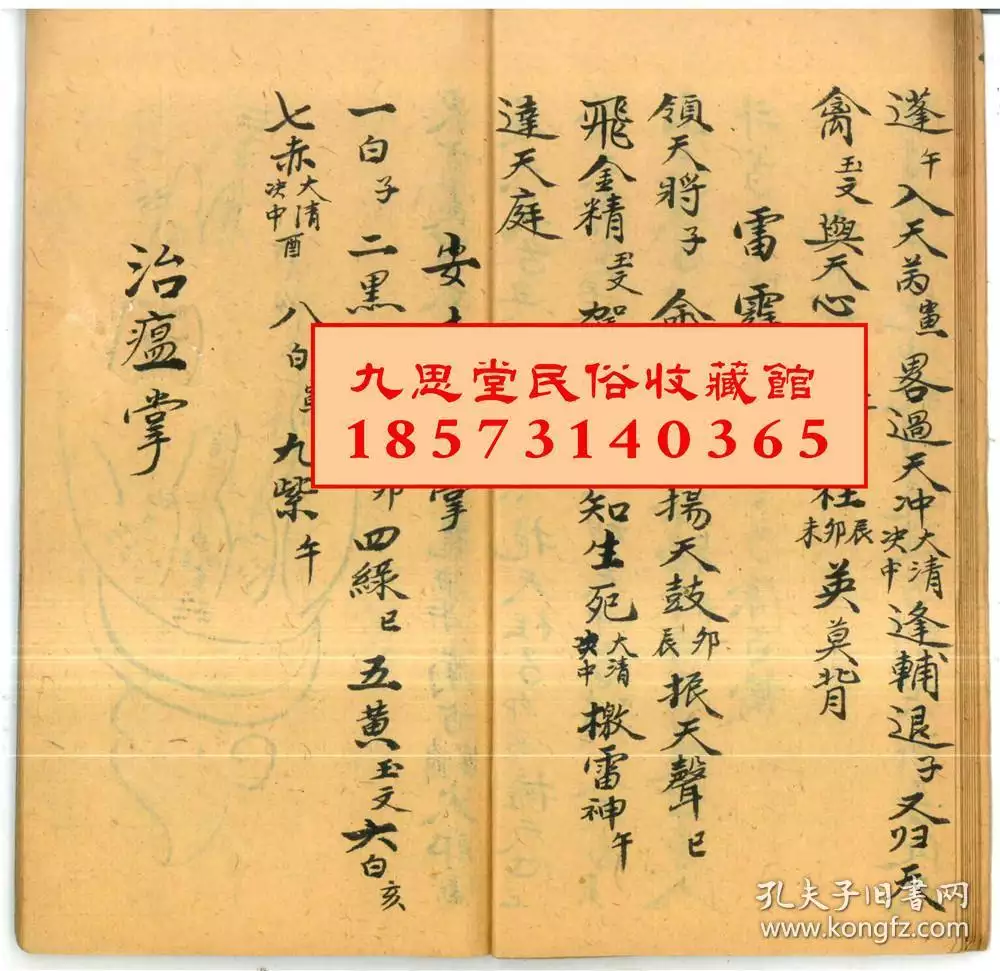 蓬午入天芮畧過天冲大清决中逢輔退子又归天
禽玉文與天心柱辰卯未英莫背
雷霆
領天將子揚天鼓卯辰振天聲巳
飛金精玉文知生死大清决中檄雷神午
達天庭
安土掌
一白子二黑卯四緑巳五黄玉文六白亥
七赤大清决中酉八白九紫午
治瘟掌
九思堂民俗收藏館
18573140365
孔夫子旧书网
www.kongfz.com